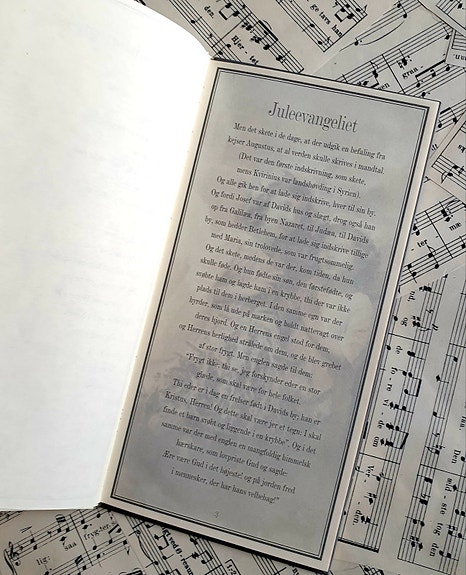 Juleevangeliet
Men det skete i de dage, at der udgik en befaling fra
kejser Augustus, at al verden skulle skrives i mandtal.
(Det var den første indskrivning, som skete,
mens Kvirinius var landshøvding i Syrien).
Og alle gik hen for at lade sig indskrive, hver til sin by.
Og fordi Josef var af Davids hus og slægt, drog også han
op fra Galilæa, fra byen Nazaret, til Judæa, til Davids
by, som hedder Betlehem, for at lade sig indskrive tillige
med Maria, sin trolovede, som var frugtsommelig.
Og det skete, medens de var der, kom tiden, da hun
skulle føde. Og hun fødte sin søn, den førstefødte, og
svøbte ham og lagde ham i en krybbe, thi der var ikke
plads til dem i herberget. I den samme egn var der
hyrder, som lå ude på marken og holdt nattevagt over
deres hjord. Og en Herrens engel stod for dem,
og Herrens herlighed strålede om dem, og de blev grebet
af stor frygt. Men englen sagde til dem:
"Frygt ikke, thi se, jeg forkynder eder en stor
glæde, som skal være for hele folket.
Thi eder er i dag en frelser født i Davids by; han er
Kristus, Herren! Og dette skal være jer et tegn: I skal
finde et barn svøbt og liggende i en krybbe". Og i det
samme var der med englen en mangfoldig himmelsk
hærskare, som lovpriste Gud og sagde:
Ære være Gud i det højeste! og på jorden fred
i mennesker, der har hans velbehag!"
3
Hjer-
gen
graa-
ter
mæ
lig:
saa
frygter